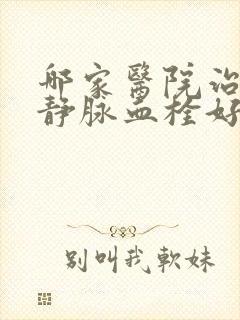 哪家醫院治
静脉血栓好
别叫我軟妹